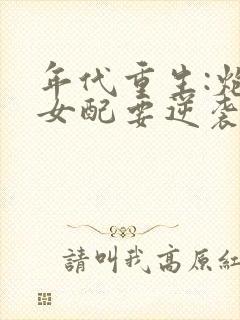 年代重生:炮
女配要逆袭
請叫我高原紅